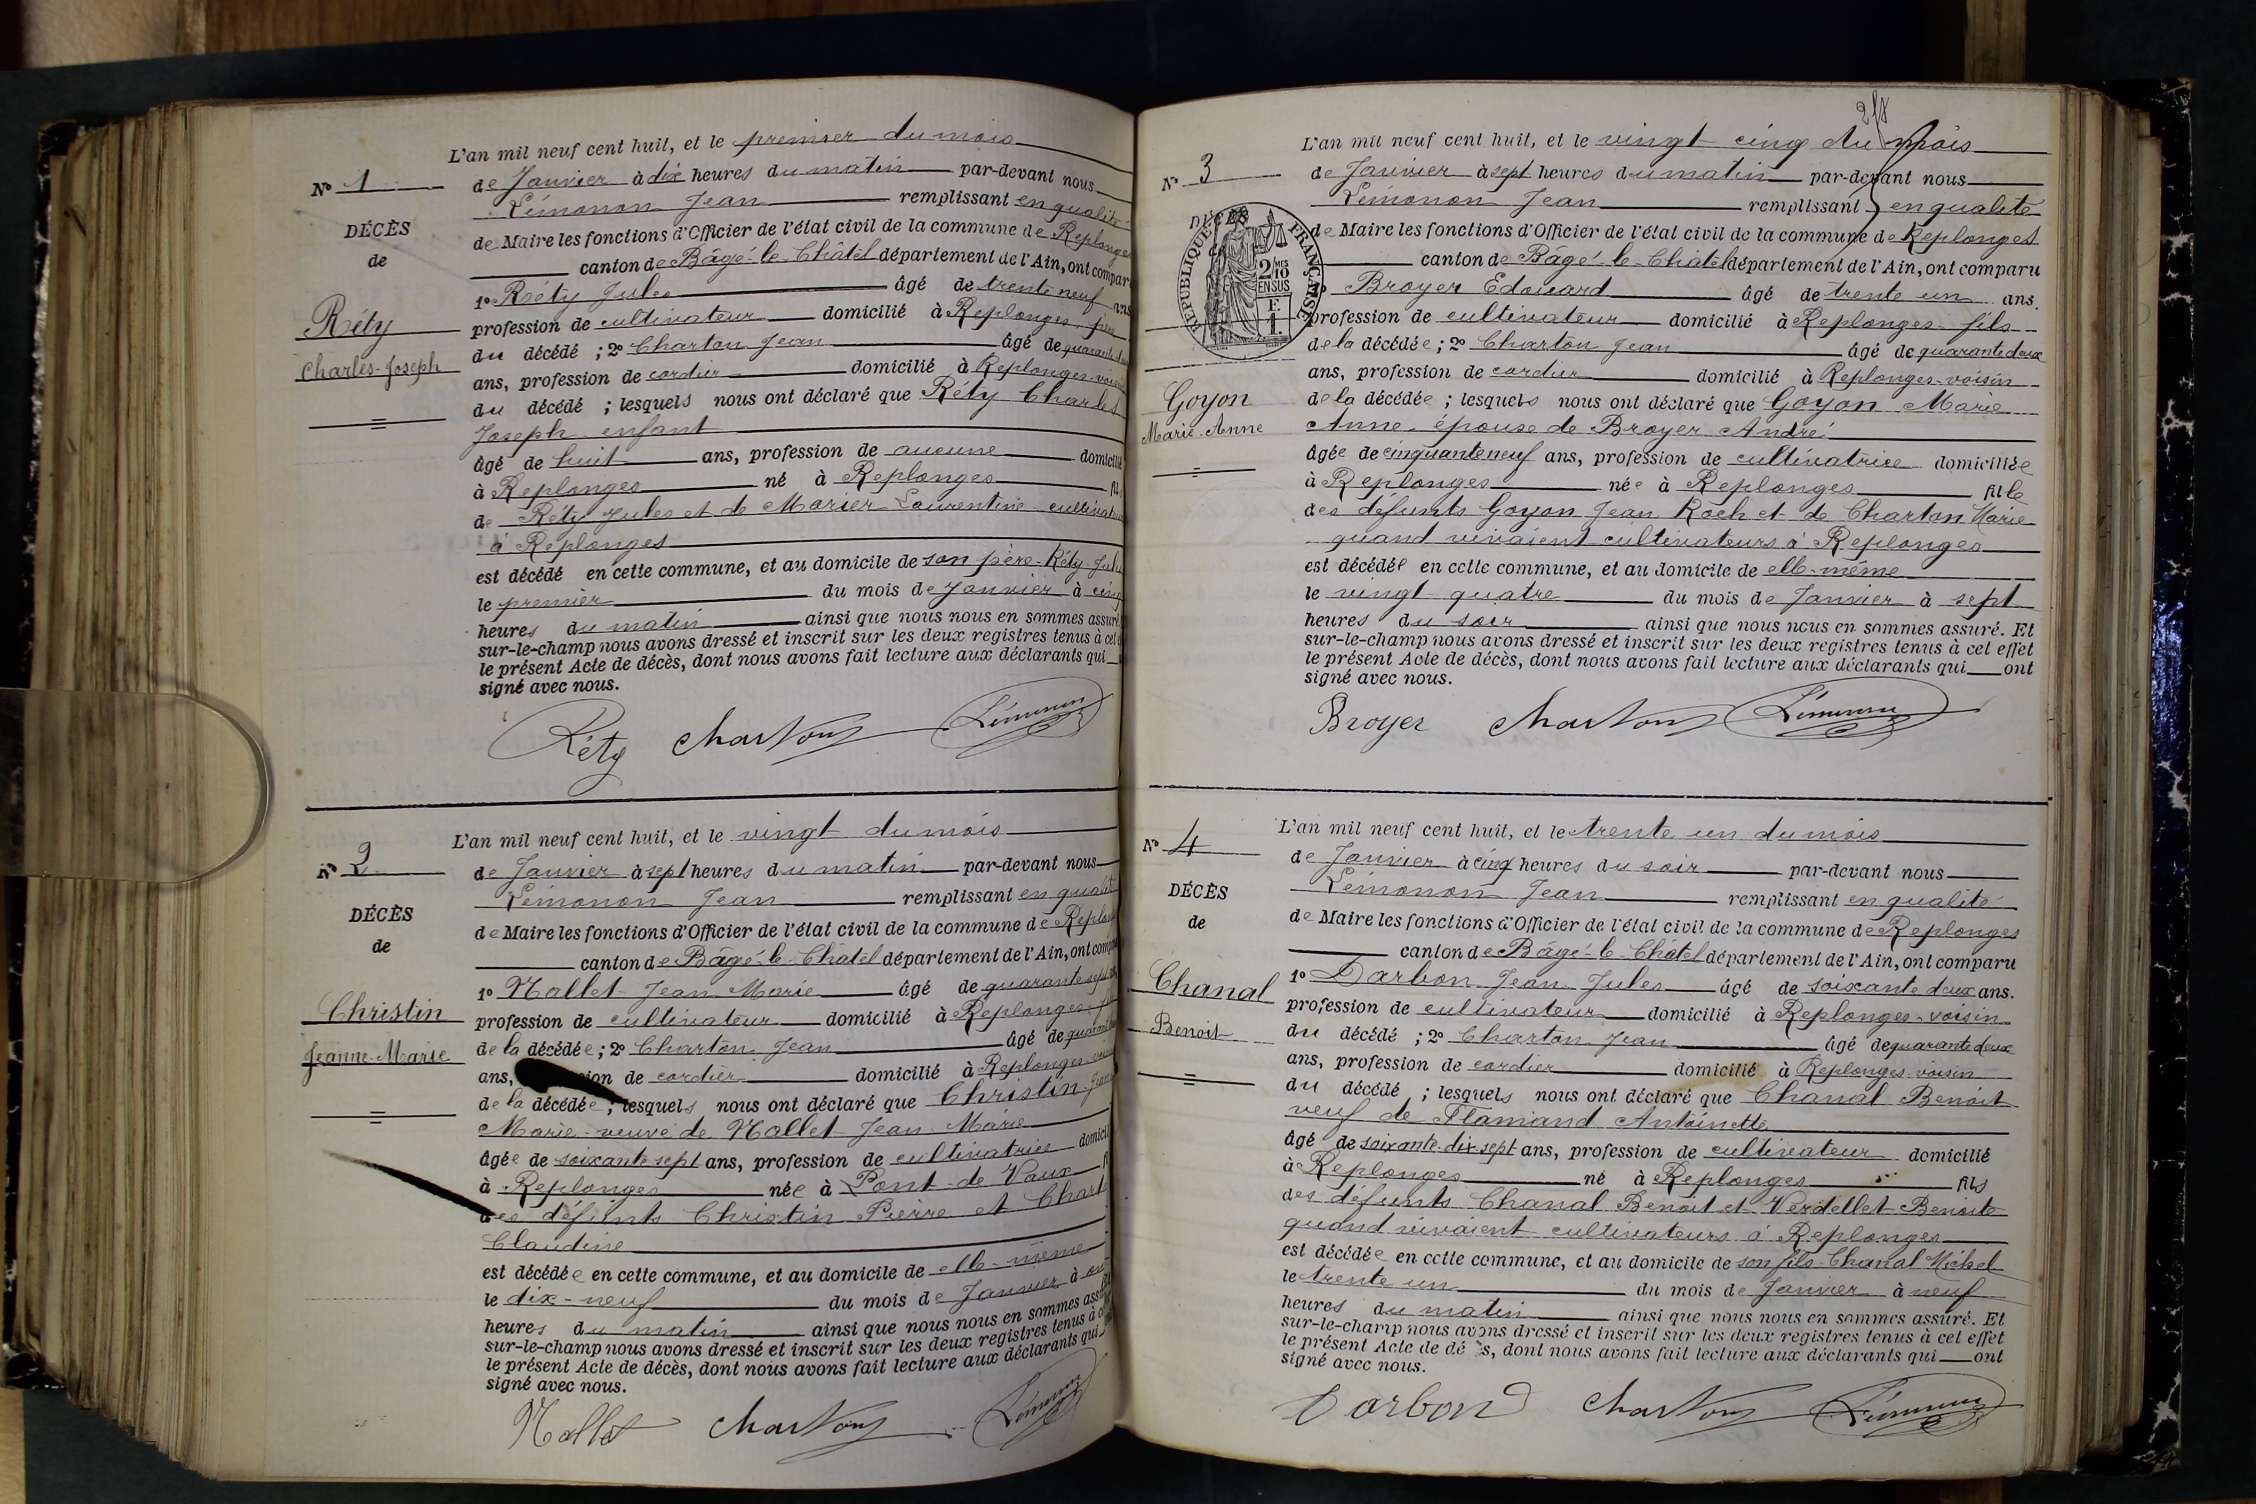 L'an mil neuf cent huit, et le premier du mois
N° 1
de Janvier à dix heures du matin par-devant nous
Lémonon Jean remplissant en qualité
DÉCÈS
de Maire les fonctions d'Officier de l'état civil de la commune de Replonges
de
canton de Bâgé-le-Châtel département de l'Ain, ont compar
1° Réty Jules âgé de trente neuf ans
Réty
profession de cultivateur domicilié à Replonges père
du décédé ; 2° Charton Jean âgé de
Charles-Joseph
ans, profession de cordier domicilié à Replonges-voisin
du décédé ; lesquels nous ont déclaré que Réty Charles
Joseph enfant
âgé de huit ans, profession de aucune domicilié
à Replonges né à Replonges fils
de Réty Jules et de Morier Laurentine cultivateurs
à Replonges
est décédé en cette commune, et au domicile de son père-Réty-Jules
le premier du mois de Janvier à cinq
heures du matin ainsi que nous nous en sommes assuré
sur-le-champ nous avons dressé et inscrit sur les deux registres tenus à cet
le présent Acte de décès, dont nous avons fait lecture aux déclarants qui
signé avec nous.
Réty Charton Lémonon
L'an mil neuf cent huit, et le vingt du mois
N° 2
de Janvier à sept heures du matin par-devant nous
Lémonon Jean remplissant en qualité
DÉCÈS
de Maire les fonctions d'Officier de l'état civil de la commune de Replon
de
canton de Bâgé-le-Châtel département de l'Ain, ont comp
1° Nallet Jean Marie âgé de quarante sept
Christin
profession de cultivateur domicilié à Replonges
de la décédée ; 2° Charton Jean âgé de
Jeanne-Marie
ans, ion de cordier domicilié à Replonges
de la décédée ; lesquels nous ont déclaré que Christin Jeanne
Marie-veuve de Nallet Jean Marie
âgée de soixante sept ans, profession de cultivatrice domicil
à Replonges née à Pont-de-Vaux
des défunts Christin Pierre et Chart
Claudine
est décédée en cette commune, et au domicile de elle-même
le dix-neuf du mois de Janvier à
heures du matin ainsi que nous nous en sommes ass
sur-le-champ nous avons dressé et inscrit sur les deux registres tenus à c
le présent Acte de décès, dont nous avons fait lecture aux déclarants qui
signé avec nous.
Nallet Charton Lémonon
L'an mil neuf cent huit, et le vingt cinq du mois
N° 3
de Janvier à sept heures du matin par-devant nous
Lémonon Jean remplissant en qualité
DÉCÈS
RÉPUBLIQUE FRANÇAISE
2 MES 10 EN SUS
F. 1.
de Maire les fonctions d'Officier de l'état civil de la commune de Replonges
canton de Bâgé-le-Châtel département de l'Ain, ont comparu
Broyer Edouard âgé de trente un ans.
profession de cultivateur domicilié à Replonges-fils
de la décédée ; 2° Charton Jean âgé de quarante deux
ans, profession de cordier domicilié à Replonges-voisin
Goyon
de la décédée ; lesquels nous ont déclaré que Goyon Marie
Marie-Anne
Anne-épouse de Broyer André
âgée de cinquante neuf ans, profession de cultivatrice domiciliée
à Replonges née à Replonges fille
des défunts Goyon Jean Roch et de Charton Marie
quand vivaient cultivateurs à Replonges
est décédée en cette commune, et au domicile de elle-même
le vingt quatre du mois de Janvier à sept
heures du soir ainsi que nous nous en sommes assuré. Et
sur-le-champ nous avons dressé et inscrit sur les deux registres tenus à cet effet
le présent Acte de décès, dont nous avons fait lecture aux déclarants qui ont
signé avec nous.
Broyer Charton Lémonon
L'an mil neuf cent huit, et le trente un du mois
N° 4
de Janvier à cinq heures du soir par-devant nous
Lémonon Jean remplissant en qualité
DÉCÈS
de Maire les fonctions d'Officier de l'état civil de la commune de Replonges
de
canton de Bâgé-le-Châtel département de l'Ain, ont comparu
1° Darbon Jean Jules âgé de soixante deux ans.
Chanal
profession de cultivateur domicilié à Replonges-voisin
Benoit
du décédé ; 2° Charton Jean âgé de quarante deux
ans, profession de cordier domicilié à Replonges-voisin
du décédé ; lesquels nous ont déclaré que Chanal Benoit
veuf de Flamand Antoinette
âgé de soixante-dix-sept ans, profession de cultivateur domicilié
à Replonges né à Replonges fils
des défunts Chanal Benoit et Verdellet Benoite
quand vivaient cultivateurs à Replonges
est décédée en cette commune, et au domicile de son fils-Chanal Michel
le trente un du mois de Janvier à neuf
heures du matin ainsi que nous nous en sommes assuré. Et
sur-le-champ nous avons dressé et inscrit sur les deux registres tenus à cet effet
le présent Acte de dé s, dont nous avons fait lecture aux déclarants qui ont
signé avec nous.
Darbon Charton Lémonon